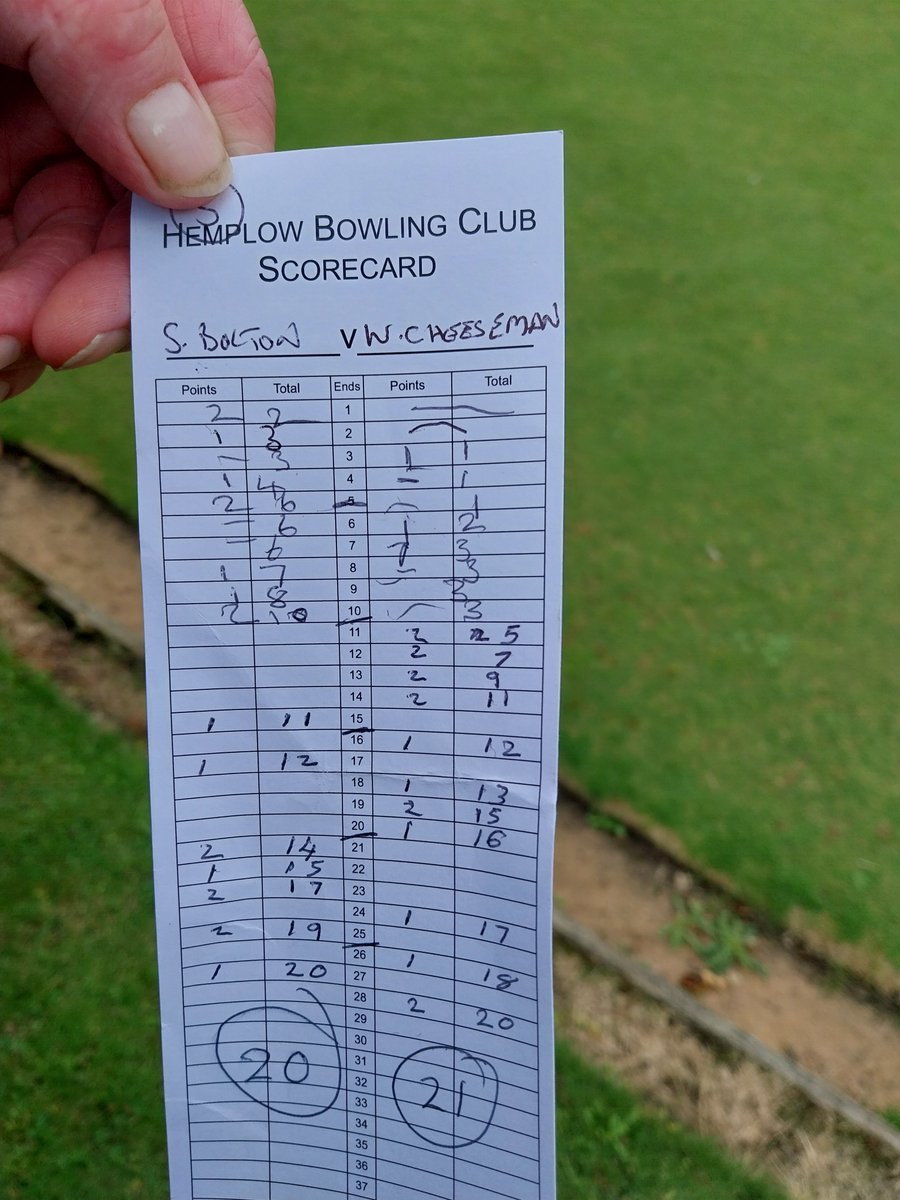 3
HEMPLOW BOWLING CLUB
SCORECARD
S. BOLTON V W. CHEESEMAN
Points Total Ends Points Total
2 2 1 —
1 3 2 —
— 3 3 1 1
1 4 4 — 1
2 6 5 — 1
— 6 6 1 2
— 6 7 1 3
1 7 8 — 3
1 8 9 — 3
2 10 10 — 3
11 2 5
12 2 7
13 2 9
14 2 11
1 11 15
16 1 12
1 12 17
18 1 13
19 2 15
20 1 16
2 14 21
1 15 22
2 17 23
24 1 17
2 19 25
26 1 18
1 20 27
28 2 20
29
30
20 31 21
32
33
34
35
36
37